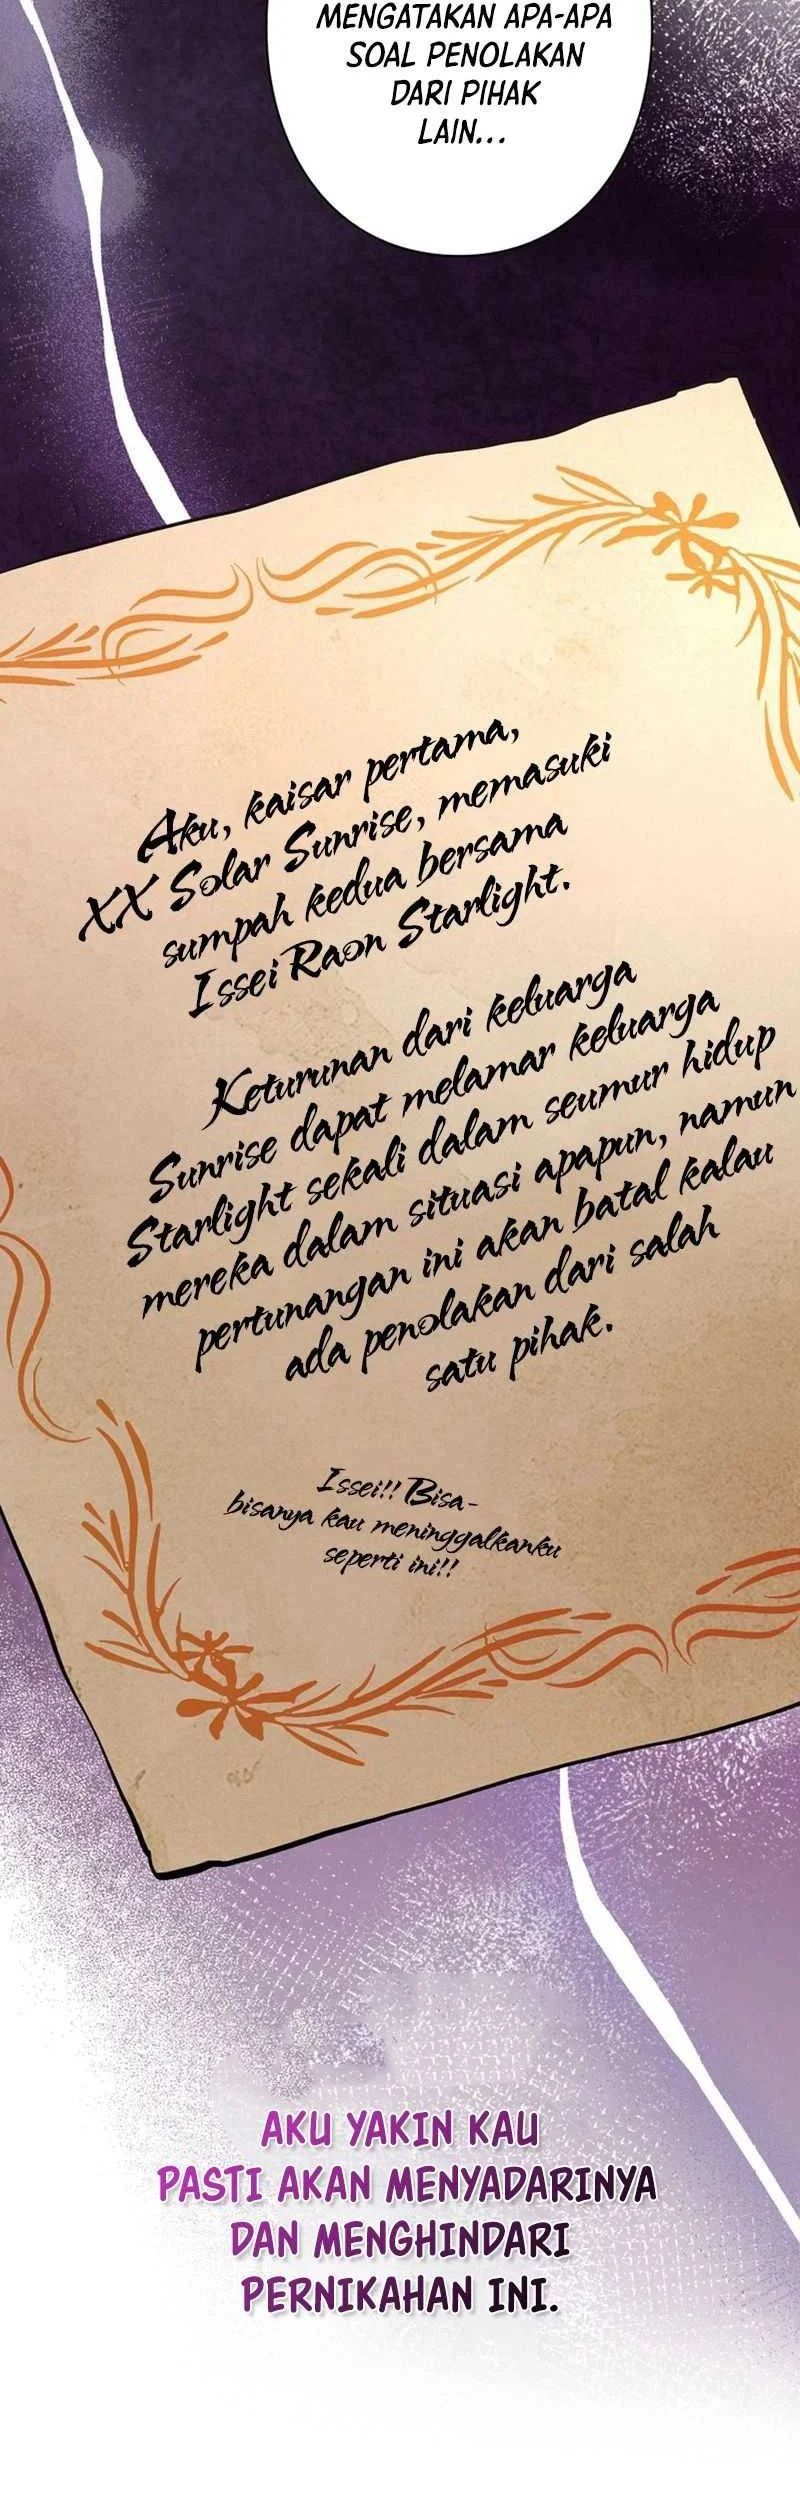 MENGATAKAN APA-APA
SOAL PENOLAKAN
DARI PIHAK
LAIN...
Aku, kaisar pertama,
XX Solar Sunrise, memasuki
sumpah kedua bersama
Issei Raon Starlight.
Keturunan dari keluarga
Sunrise dapat melamar keluarga
Starlight sekali dalam seumur hidup
mereka dalam situasi apapun, namun
pertunangan ini akan batal kalau
ada penolakan dari salah
satu pihak.
Issei!! Bisa-
bisanya kau meninggalkanku
seperti ini!!
AKU YAKIN KAU
PASTI AKAN MENYADARINYA
DAN MENGHINDARI
PERNIKAHAN INI.